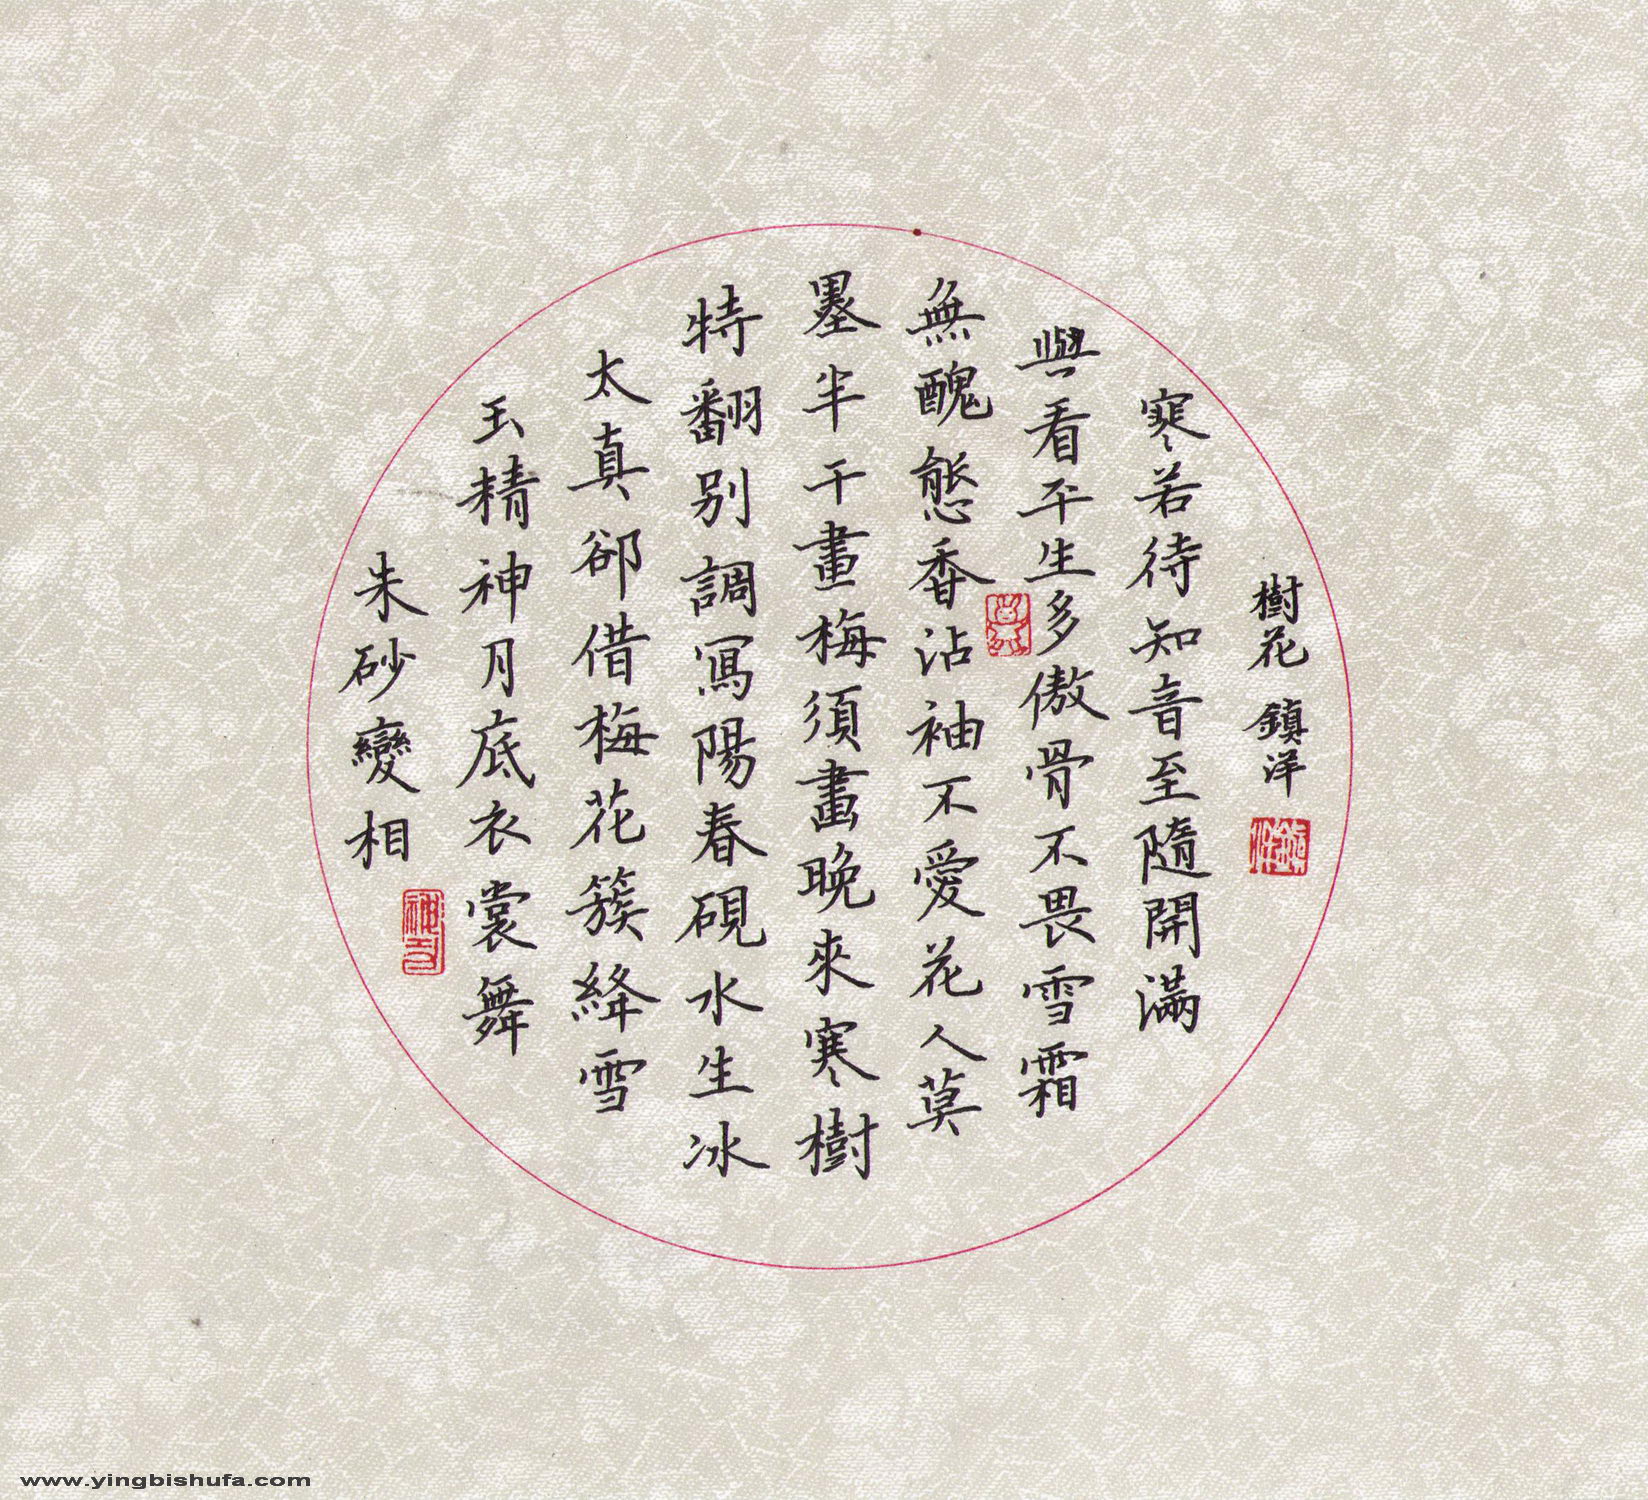 朱砂變相
玉精神月底衣裳舞
太真卻借梅花簇絳雪
特翻別調寫陽春硯水生冰
墨半干畫梅須畫晚來寒樹
無醜態香沾袖不愛花人莫
與看平生多傲骨不畏雪霜
寒若待知音至隨開滿
樹花 鎮洋
鎮洋
www.yingbishufa.com